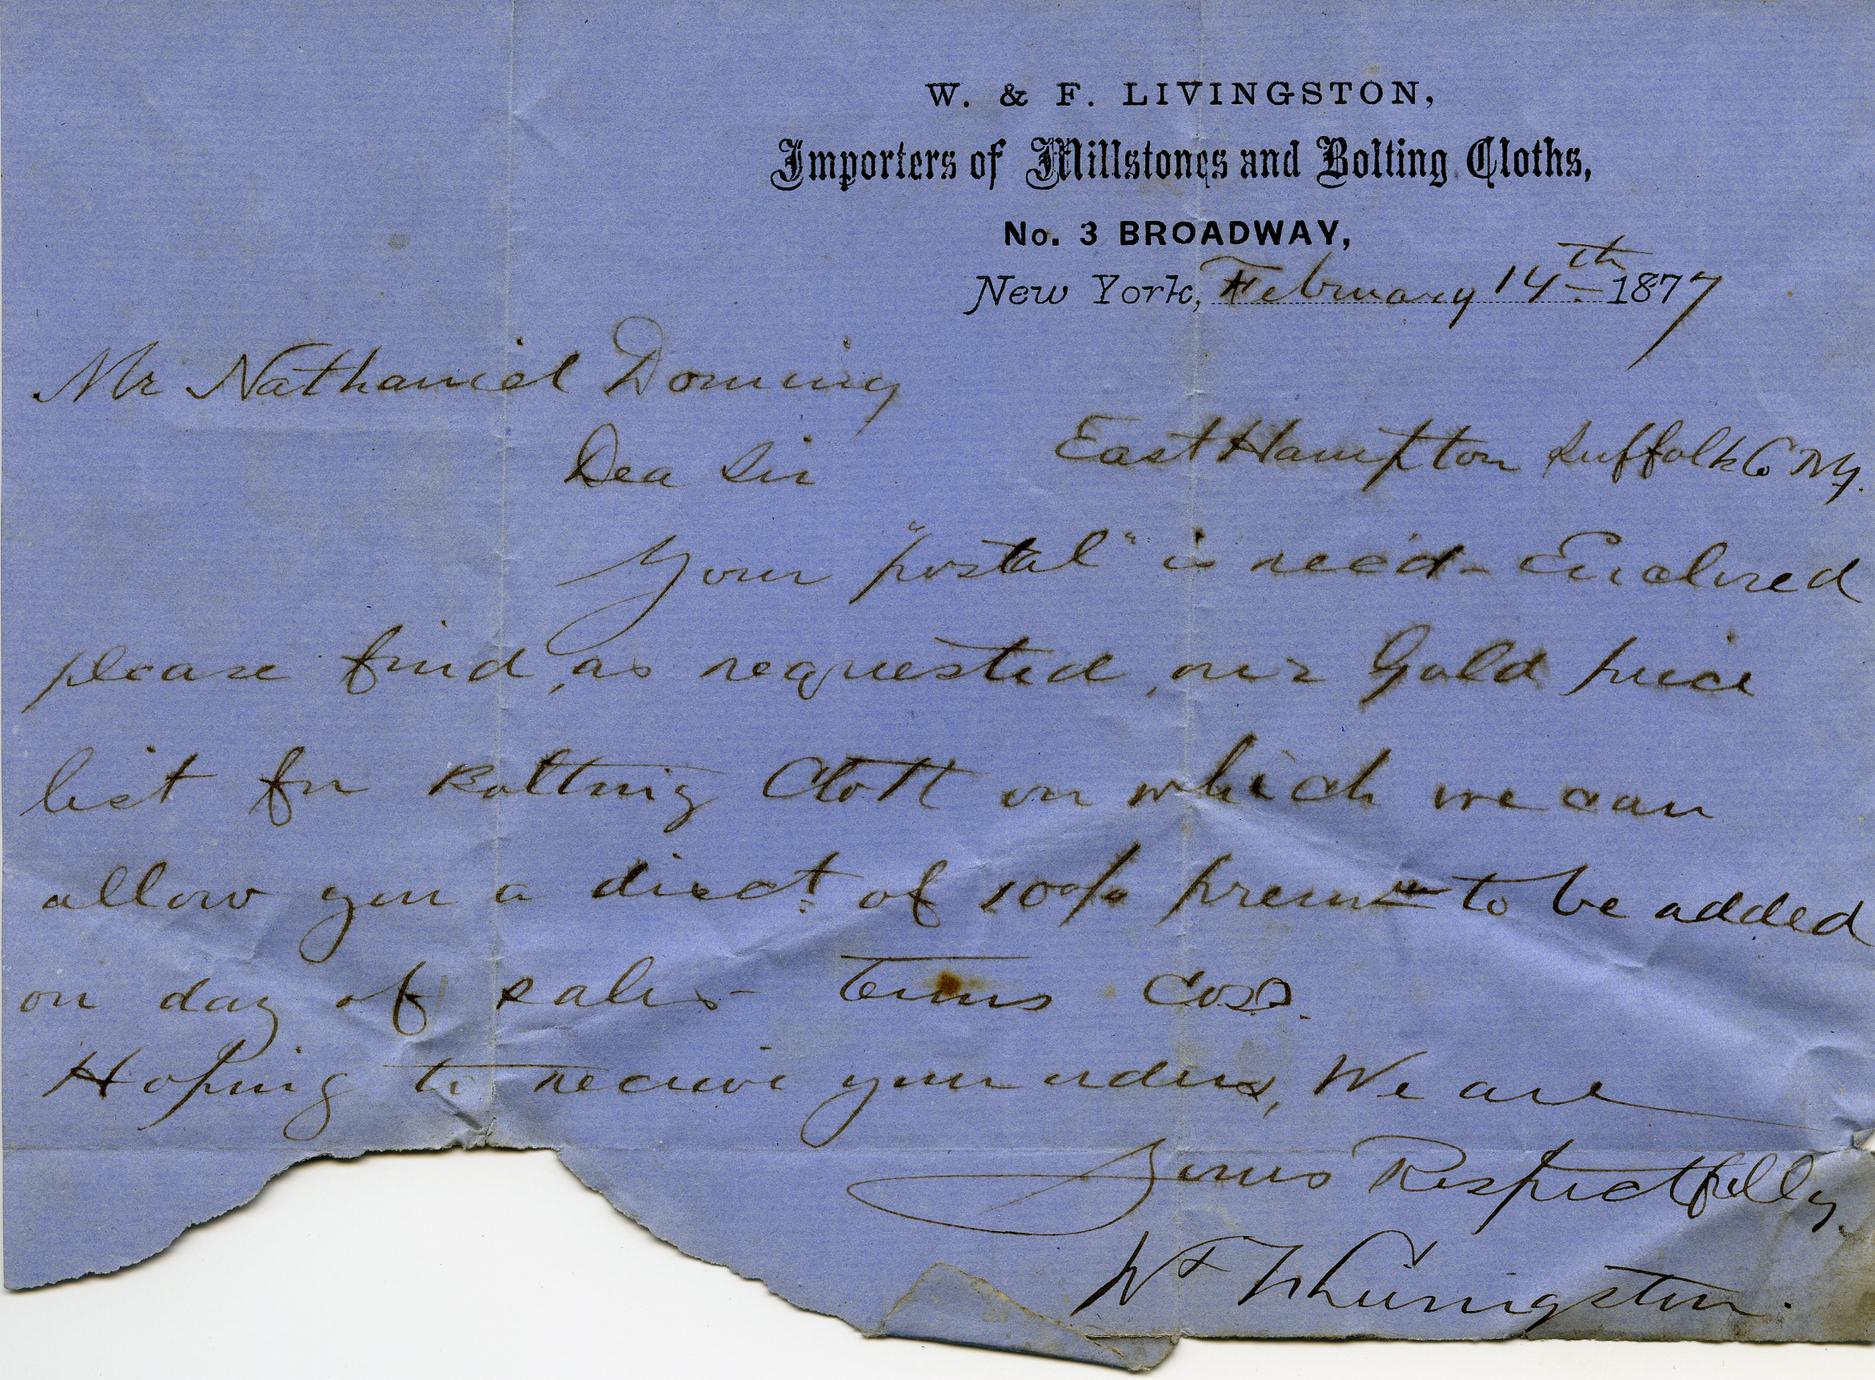 W. & F. LIVINGSTON,
Importers of Millstones and Bolting Cloths,
No. 3 BROADWAY,
New York, February 14th 1877
Mr Nathaniel Dominy
Dea Sir East Hampton Suffolk Co N.Y.
Your "postal" is recd - Enclosed
please find, as requested, our Gold price
list for Bolting Cloth on which we can
allow you a disct. of 10% premm to be added
on day of sales - terms
Hoping to receive your orders, We are
Yours Respectfully,
W & F Livingston.